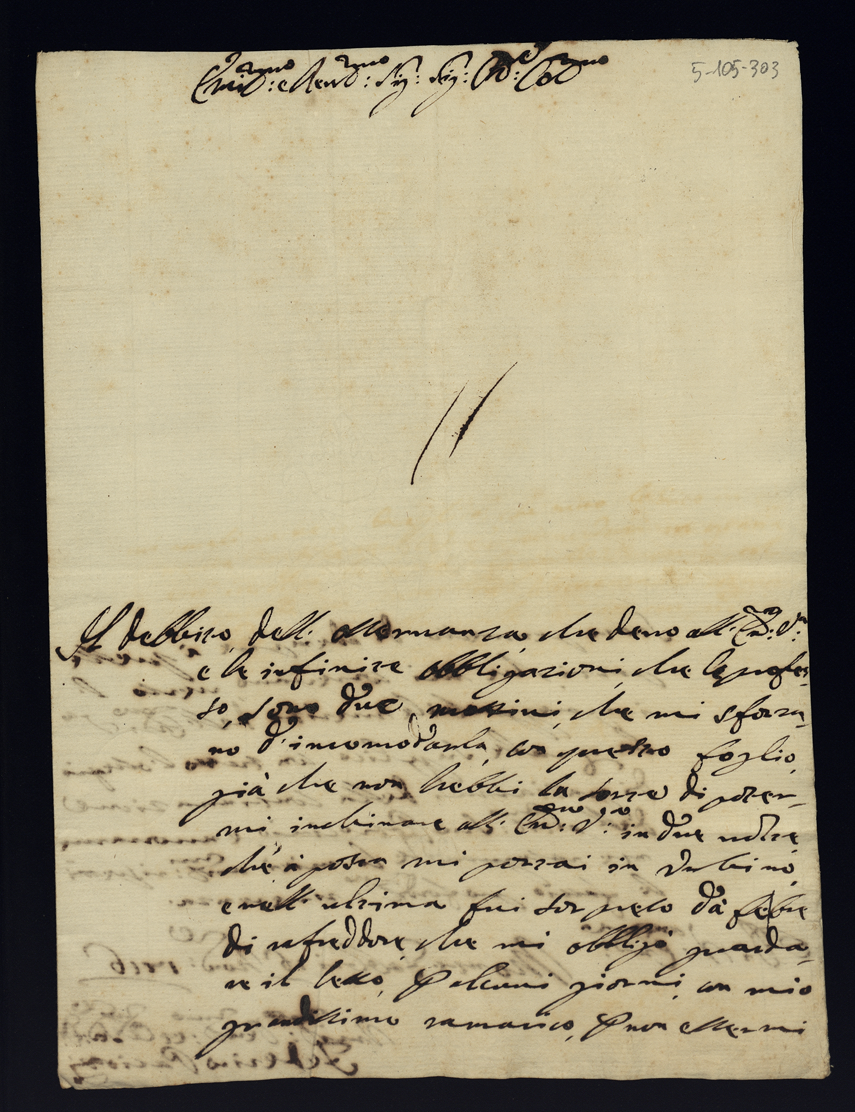 5-105-303
Em:mo e Rev:mo Sig: Sig: P:ne Col:mo
Il debbito dell: osservanza, che devo all: Em: V:
e le infinite obbligazioni, che le profes-
so, sono due motivi, che mi sforza-
no d'incomodarla, con questo foglio,
già che non hebbi la sorte di poter-
mi inchinare all: Em: V: in due volte
che à posta mi portai in Urbino,
e nell' ultima fui sorpreso dà febre
di rafreddore, che mi obbligò guarda-
re il letto, P alcuni giorni, con mio
grandissimo ramarico, P non essermi